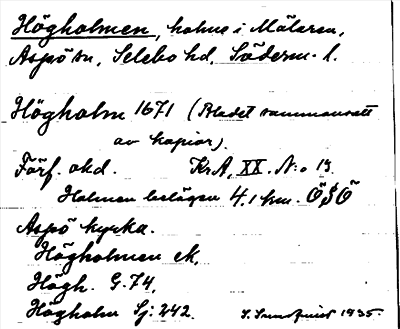 Högholmen, holme i Mälaren,
Aspö sn, Selebo hd, Söderm. l.
Högholm 1671 (Bladet sammansatt
av kopior).
Förf. okd. Kr.A, XX. N:o 13.
Holmen belägen 4.1 km. ÖSÖ
Aspö kyrka.
Högholmen ek,
Högh. G. 74,
Högholm Sj: 242. 1935.